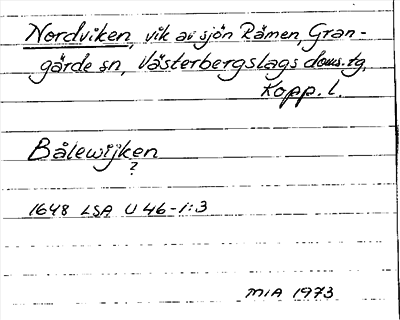 Nordviken, vik av sjön Rämen, Gran-
gärde sn, Västerbergslags doms.tg,
Kopp. l.
Bålewijken
?
1648 LSA U 46-1:3
MIA 1973